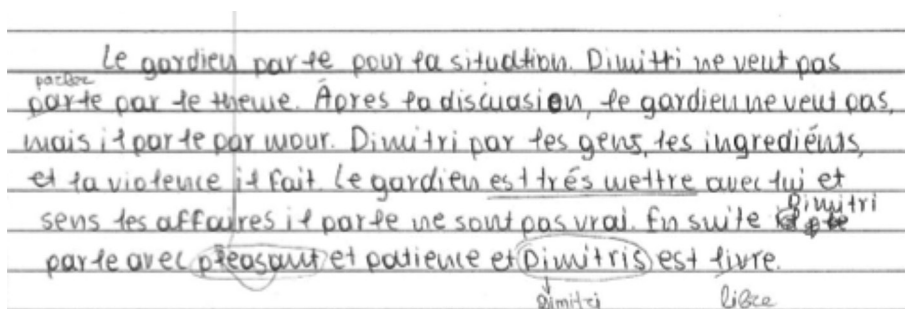 Le gardien parle pour la situation. Dimitri ne veut pas
parler
parle par le theme. Àpres la discuasion, le gardien ne veut pas,
mais il parle par mour. Dimitri par les gens, les ingrediénts,
et la violence il fait. Le gardien est trés mettre avec lui et
sens les affaires il parle ne sont pas vrai. En suite Dimitri
parle avec pleasant et patience et Dimitris est livre.
Dimitri libre